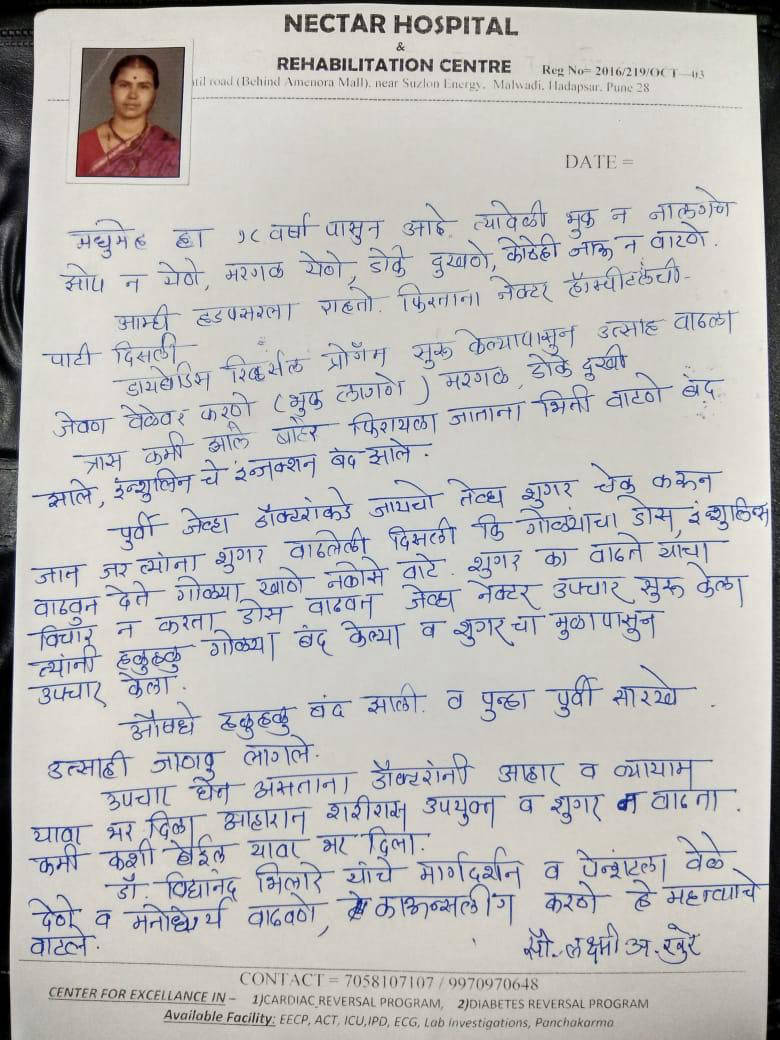 NECTAR HOSPITAL
&
REHABILITATION CENTRE Reg No= 2016/219/OCT-03
til road (Behind Amenora Mall), near Suzlon Energy, Malwadi, Hadapsar, Pune 28
DATE =
मधुमेह हा १८ वर्षा पासुन आहे. त्यावेळी भुक न लागणे
झोप न येणे, मरगळ येणे, डोके दुखणे, कोठेही जाऊ न वाटणे.
आम्ही हडपसरला राहतो. फिरताना नेक्टर हॉस्पीटलची
पाटी दिसली
डायबेडिस रिव्हर्सल प्रोग्रॅम सुरू केल्यापासुन उत्साह वाढला
जेवण वेळेवर करणे (भुक लागणे) मरगळ, डोके दुखी
त्रास कमी झाले बाहेर फिरायला जाताना भिती वाटणे बंद
झाले, इन्शुलिन चे इन्जक्शन बंद झाले.
पुर्वी जेव्हा डॉक्टरांकडे जायचो तेव्हा शुगर चेक करून
जान जर त्यांना शुगर वाढलेली दिसली कि गोळ्यांचा डोस, इन्शुलिन्स
वाढवुन देते गोळ्या खाणे नकोसे वाटे. शुगर का वाढते याचा
विचार न करता डोस वाढवत जेव्हा नेक्टर उपचार सुरू केला
त्यांनी हळुहळु गोळ्या बंद केल्या व शुगरचा मुळापासुन
उपचार केला.
औषधे हळुहळु बंद झाली. व पुन्हा पुर्वी सारखे.
उत्साही जाणवु लागले.
उपचार घेत असताना डॉक्टरांनी आहार व व्यायाम
यावर भर दिला आहारात शरीरास उपयुक्त व शुगर न वाढता.
कमी कशी होईल यावर भर दिला.
डॉ. विद्यानंद भिलारे यांचे मार्गदर्शन व पेन्शंटला वेळे
देणे व मनोधैर्य वाढवणे, काऊन्सलींग करणे हे महत्वाचे
वाटले.
सौ. लक्ष्मी अ. खुरे
CONTACT = 7058107107 / 9970970648
CENTER FOR EXCELLENCE IN – 1)CARDIAC REVERSAL PROGRAM, 2)DIABETES REVERSAL PROGRAM
Available Facility: EECP, ACT, ICU,IPD, ECG, Lab Investigations, Panchakarma